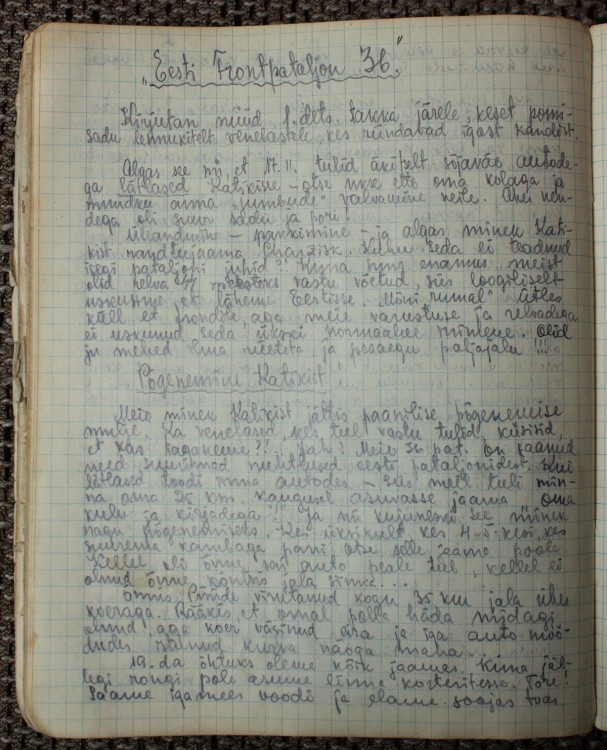 „Eesti Frontpataljon 36."
Kirjutan nüüd 1. dets. takka järele, keset pommi-
sadu lennukitelt venelastele, kes ründavad igast kandist.
Algas see nii, et 17. 11. tulid äkitselt sõjaväe autode-
ga lätlased Katikisse – otse ette oma kolaga ja
anna „jumbude" valvamine neile. Ühes nen-
dega oli suur sadu ja pori.
Üleandmine – pakkimine – ja algas minek Kati-
kist raudteejaama Kuhu seda ei teadnud
isegi pataljoni juhid?! Kuna enamus meist
olid vastu võetud, siis loogiliselt
et läheme Eestisse. Mõni rumal ütles
küll et frondile, aga meie varustuse ja relvadega
ei uskunud seda ükski normaalne inimene. Olid
ju mehed ilma riieteta ja peaaegu paljajalu !!!
Põgenemine Katikist
Meie minek Katikist jättis paanilise põgenemise
mulje. Ka venelased, kes teel vastu tulid, küsisid,
et kas taganeme?!... Jah! Meie 36 pat. on saanud
need suurimad eesti pataljonidest. Kui
lätlased toodi sinna autodes – siis meil tuli min-
na oma 35 km. kaugusel asuvasse jaama oma
kulu ja kirjadega!! Ja nii kujunes see minek
nagu põgenemiseks. Kes üksikult kes 4-5 kesi, kes
suurema kambaga pani otse selle jaama poole.
Kellel oli õnne, sai auto peale teel, kellel ei
olnud õnne kõmpis jala sinna...
Õnnis Pinde virutanud kogu 35 km jala ühes
koeraga. Rääkis, et omal polla häda midagi
olnud, aga koer väsinud ära ja iga auto möö-
dudes istunud kurva näoga maha.
19-da õhtuks oleme kõik jaamas. Kuna jäl-
legi rongi pole asume linna korteritesse. Tore!
Saame igamees voodi ja elame soojas toas